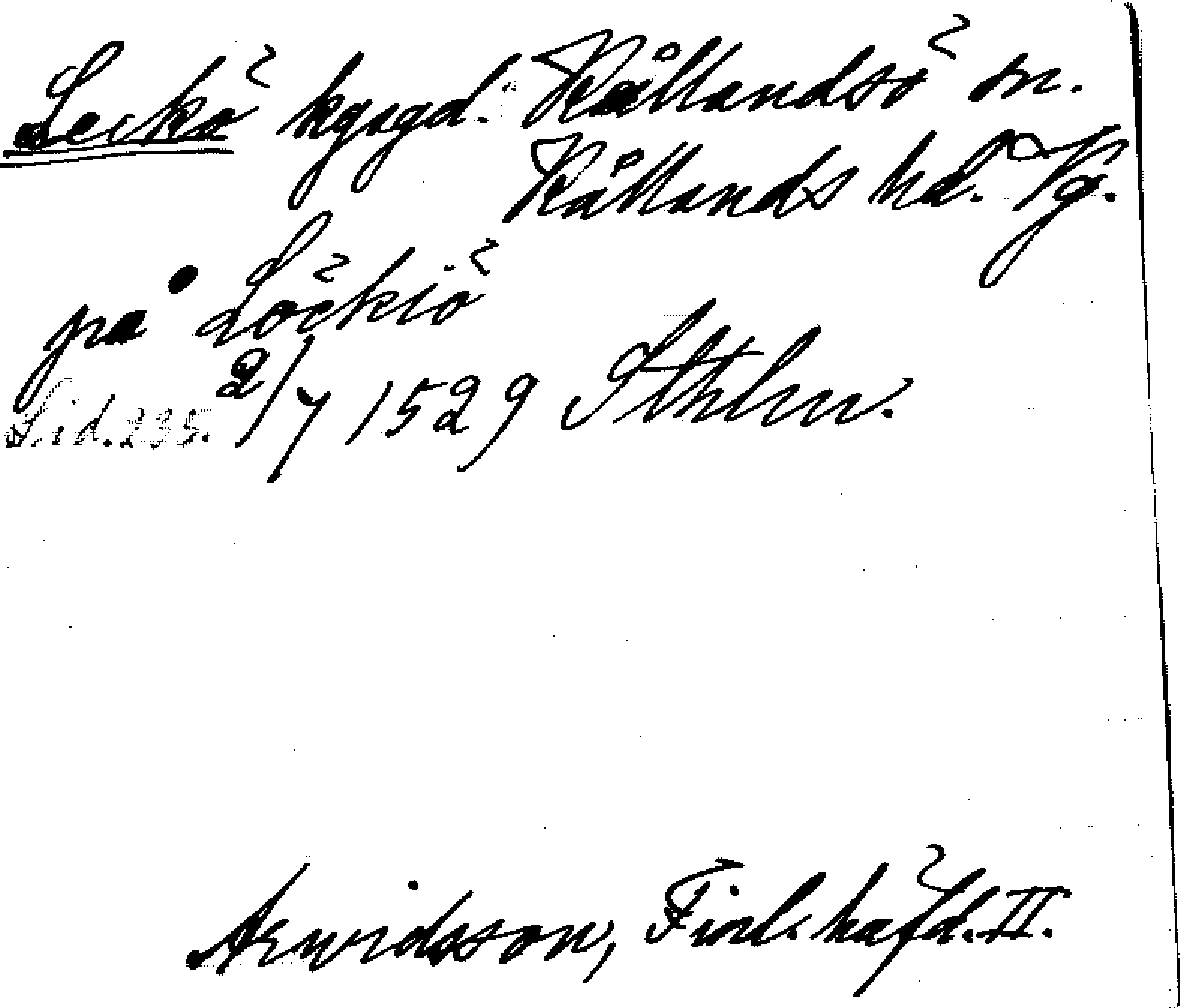 Leckö kgsgd. Kållandsö sn.
Kållands hd. Vg.
på Löckiö
Sid. 235. 2/7 1529 Sthlm.
Arwidsson, Finl. häfd. II.